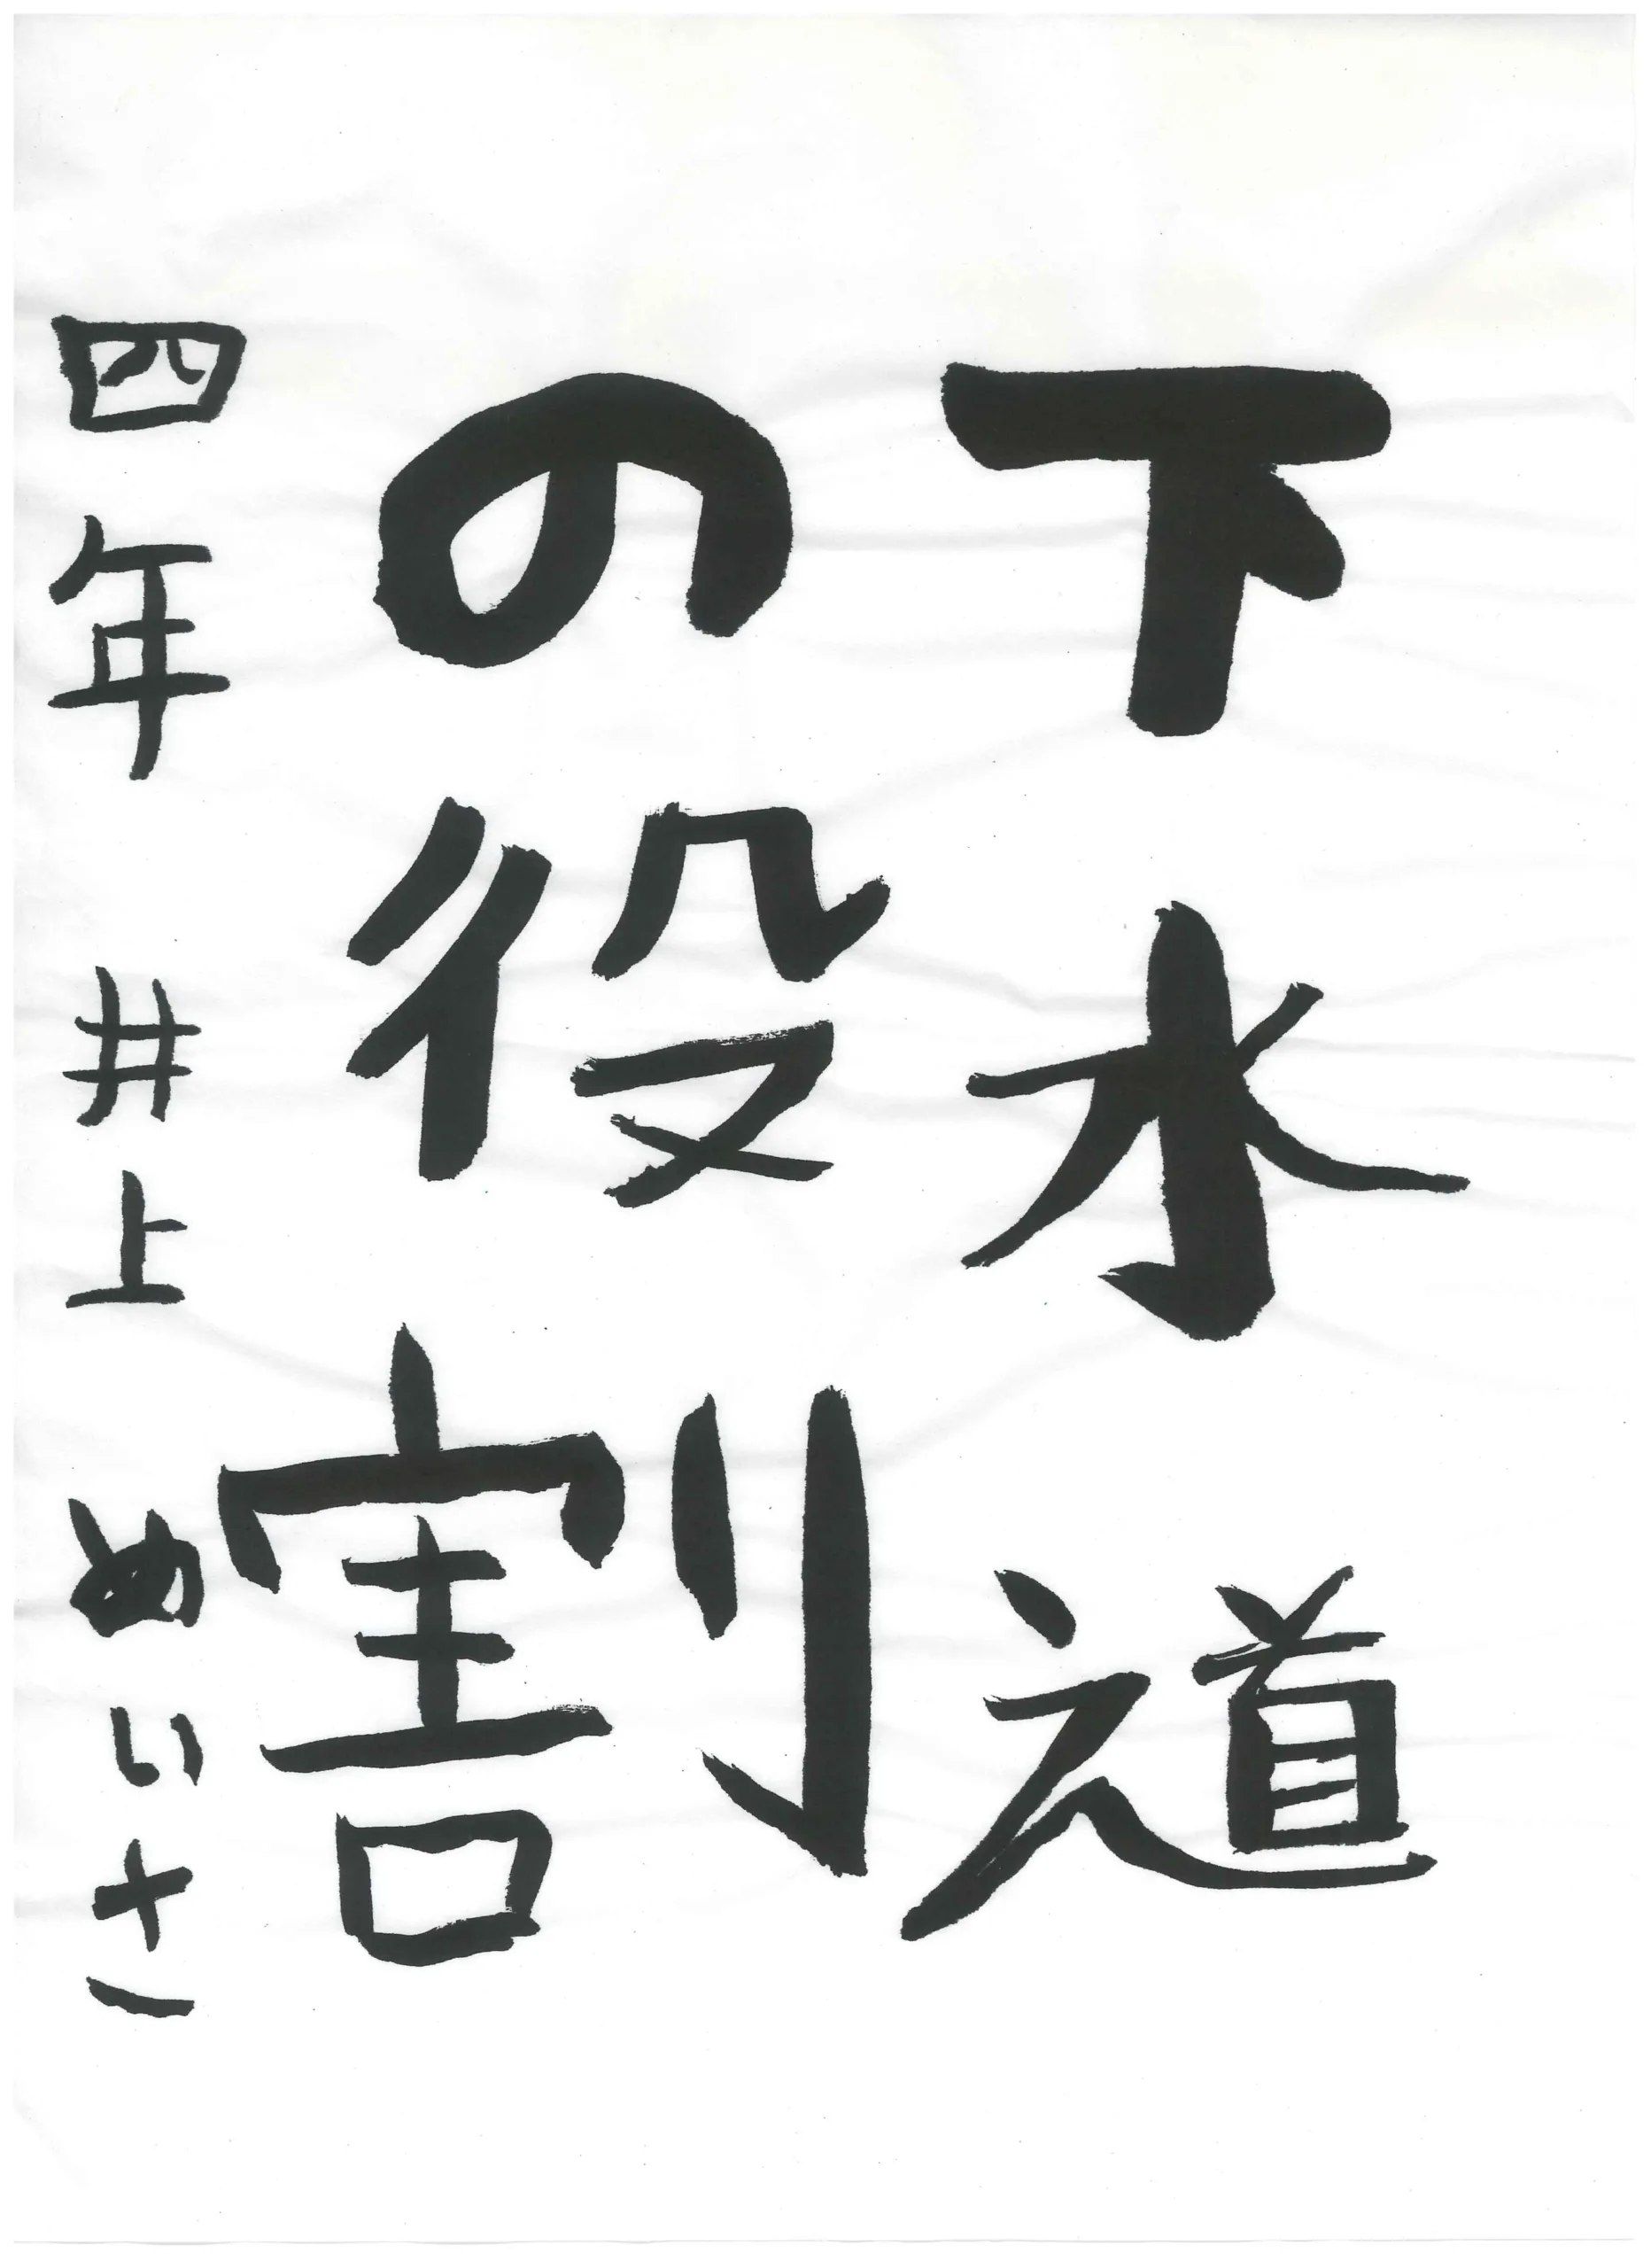 下水道
の役割
四年 井上 めいさ